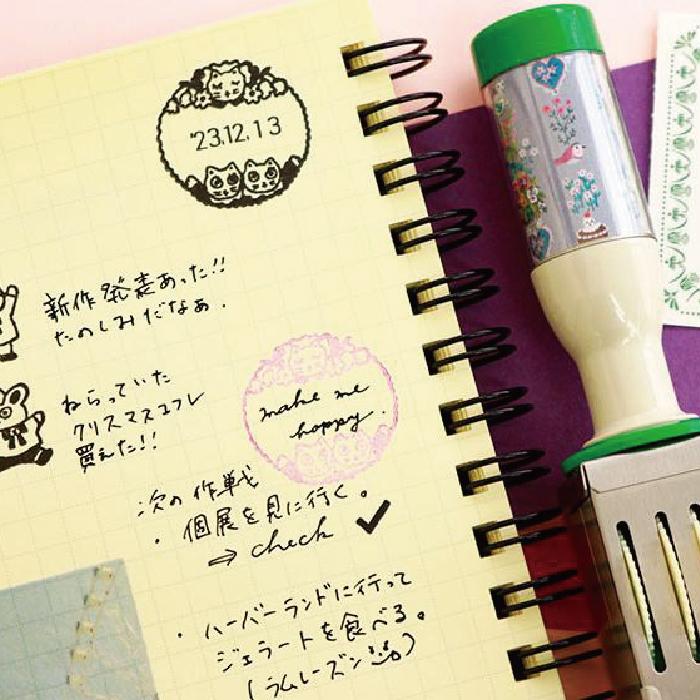 '23.12.13
新作発表あった!!
たのしみだなぁ.
ねらっていた
クリスマスコフレ
買えた!!
make me
happy.
次の作戦
・個展を見に行く。
⇒ check ✓
・ハーバーランドに行って
ジェラートを食べる。
(ラムレーズン)